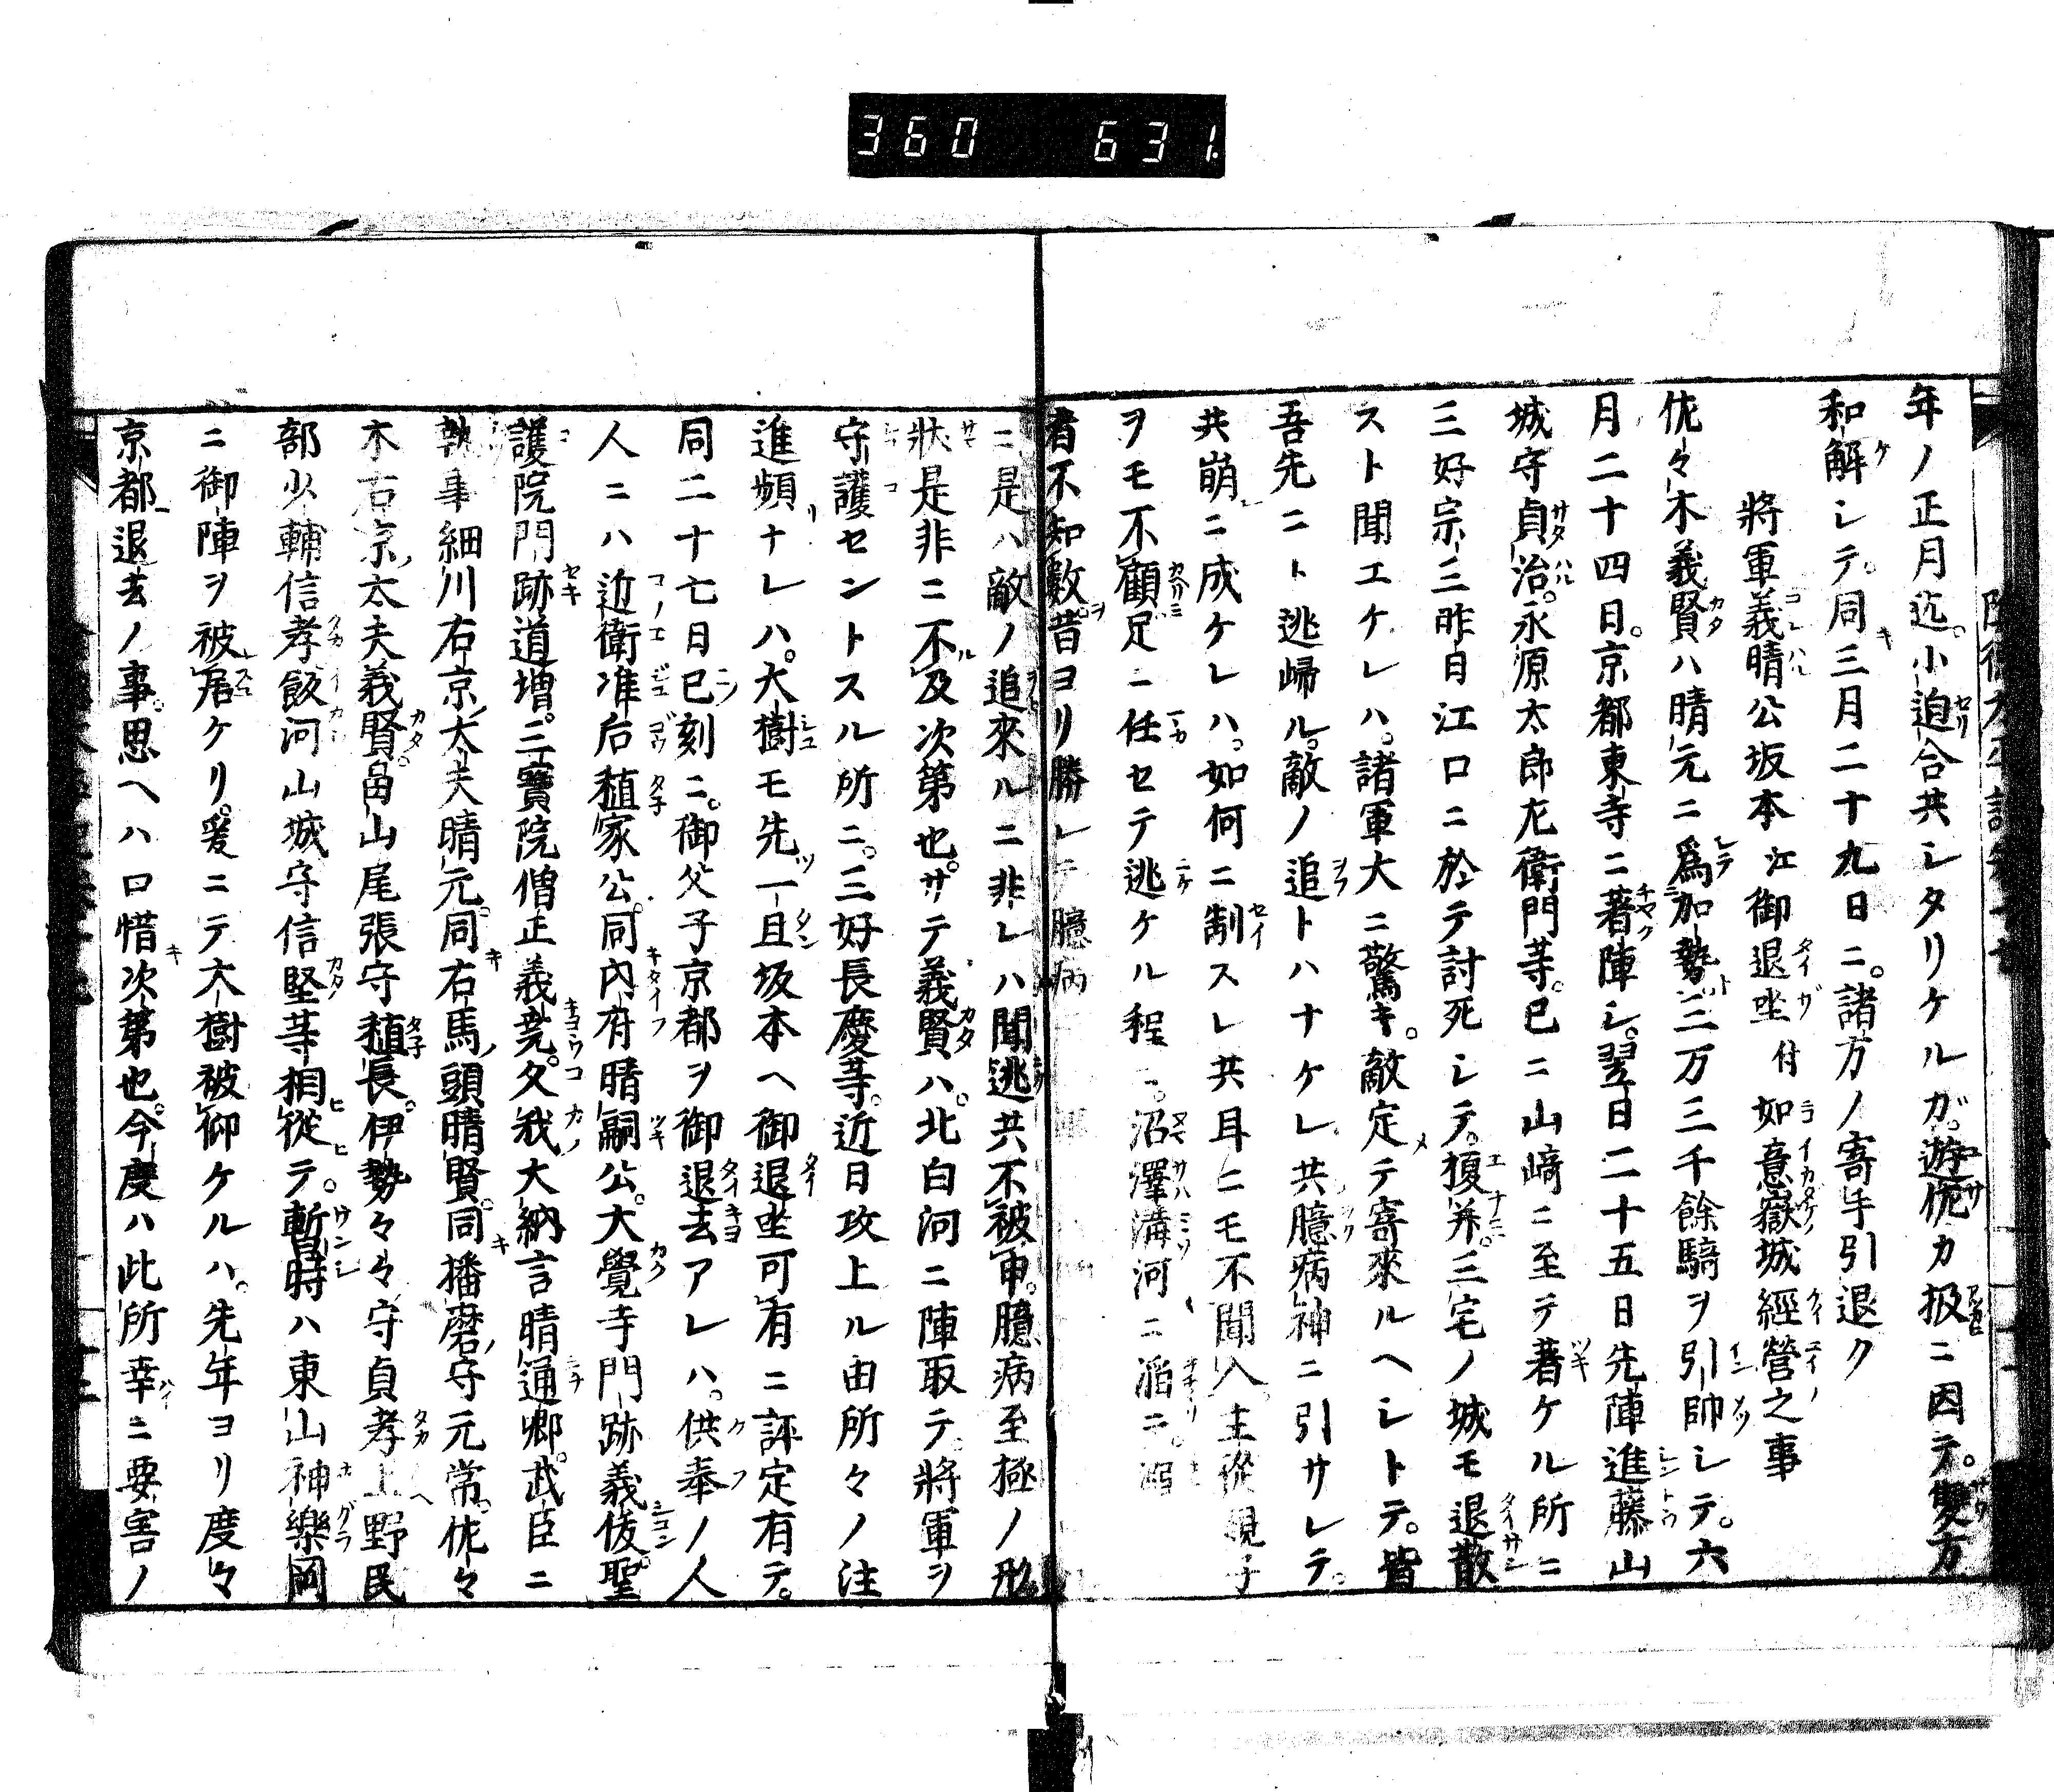 360 631.
年ノ正月迄。小迫合共シタリケルガ。遊佐カ扱ニ因テ。雙方
和解シテ。同三月二十九日ニ。諸方ノ寄手引退ク
將軍義晴公坂本江御退坐付如意嶽城經營之事
佐々木義賢ハ晴元ニ爲加勢三万三千餘騎ヲ引帥シテ。六
月二十四日。京都東寺ニ著陣シ。翌日二十五日先陣進藤山
城守貞治。永原太郎左衛門等。已ニ山﨑ニ至テ著ケル所ニ
三好宗三昨日江口ニ於テ討死シテ。榎并。三宅ノ城モ退散
スト聞エケレハ。諸軍大ニ驚キ。敵定テ寄來ルヘシトテ。皆
吾先ニト逃歸ル。敵ノ追トハナケレ共臆病神ニ引サレテ。
共崩ニ成ケレハ。如何ニ制スレ共耳ニモ不聞入。主從親子
ヲモ不顧足ニ任セテ逃ケル程ニ。沼澤溝河ニ滔ニ。溺
者不知數昔ヨリ勝レテ臆病
ニ是ハ敵ノ追來ルニ非レハ聞逃共不被申。臆病至極ノ形
狀是非ニ不及次第也。サテ義賢ハ。北白河ニ陣取テ。將軍ヲ
守護セントスル所ニ。三好長慶等。近日攻上ル由所々ノ注
進頻ナレハ。大樹モ先一旦坂本ヘ御退坐可有ニ評定有テ。
同二十七日巳刻ニ。御父子京都ヲ御退去アレハ。供奉ノ人
人ニハ近衛准后稙家公。同內府晴嗣公。大覺寺門跡義俊。聖
護院門跡道増。三寶院僧正義堯。久我大納言晴通卿。武臣ニ
執事細川右京大夫晴元。同右馬頭晴賢。同播磨守元常。佐々
木右京太夫義賢。畠山尾張守稙長。伊勢々々守貞孝上野民
部少輔信孝飯河山城守信堅等相從テ。暫時ハ東山神樂岡
ニ御陣ヲ被居ケリ。爰ニテ大樹被仰ケルハ。先年ヨリ度々
京都退去ノ事。思ヘハ口惜次第也。今度ハ此所幸ニ要害ノ